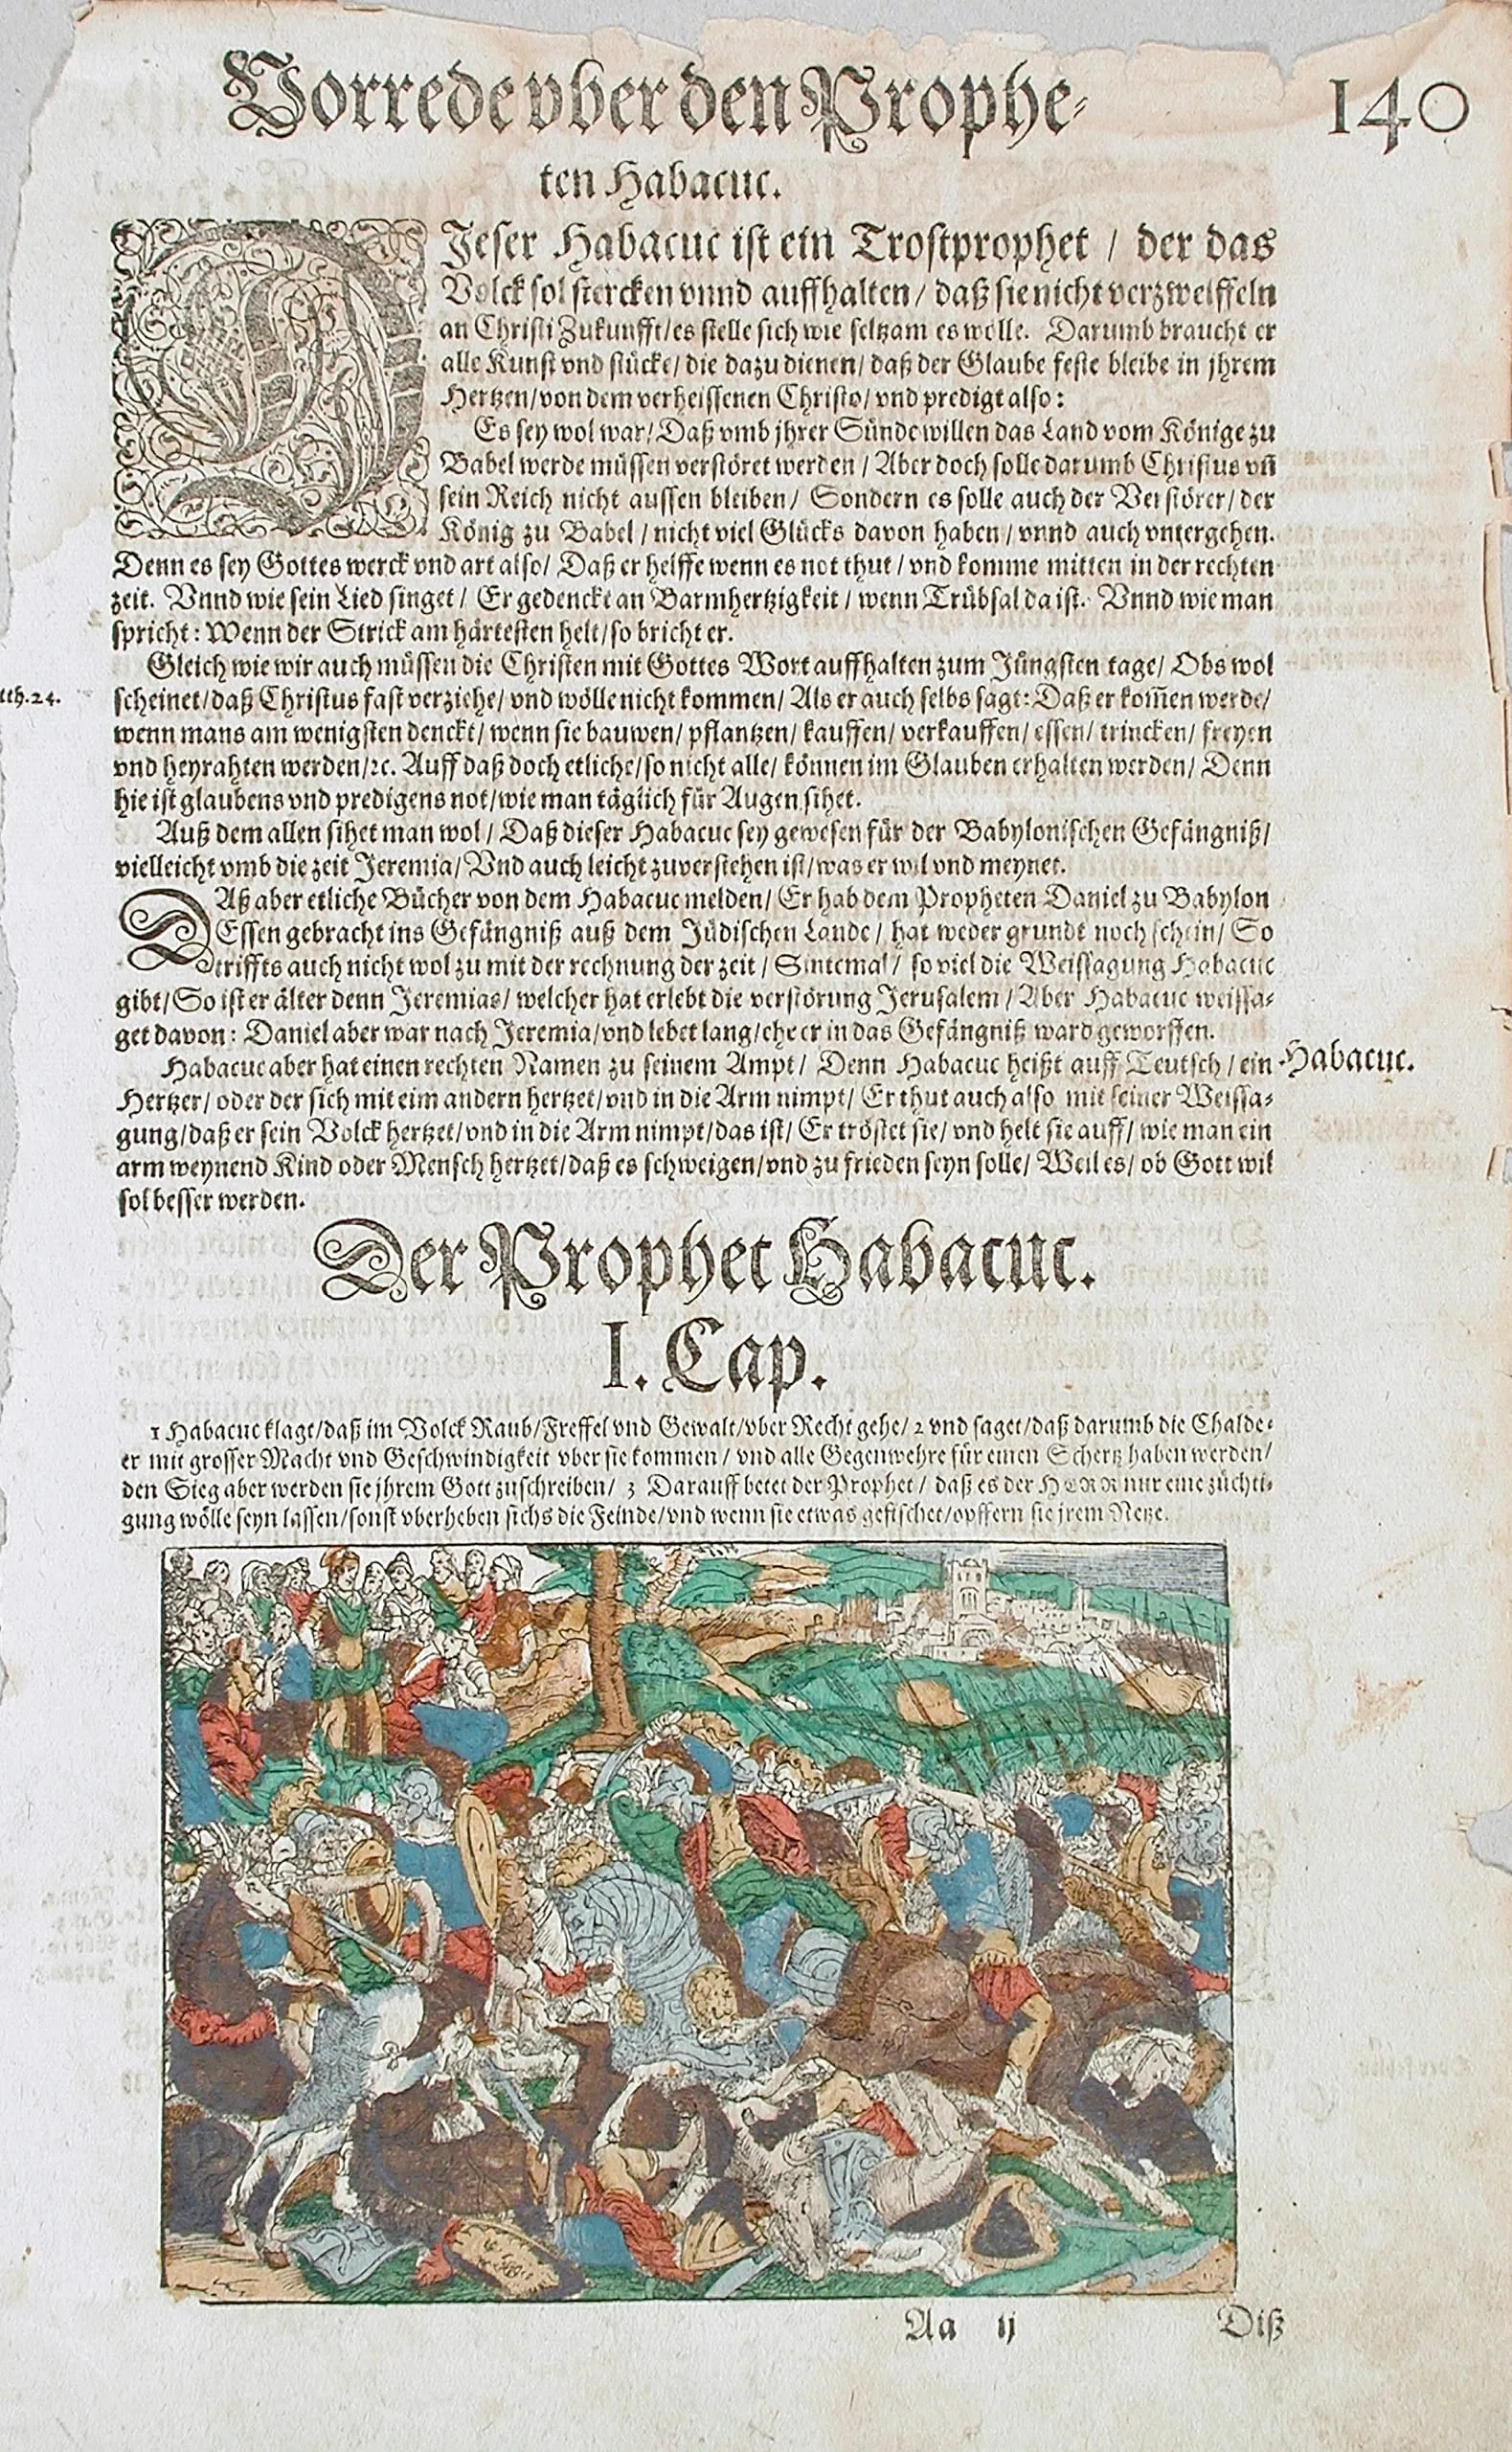 Vorrede vber den Prophe-
140
ten Habacuc.
DJeser Habacuc ist ein Trostprophet / der das
Volck sol stercken vnnd auffhalten / daß sie nicht verzweiffeln
an Christi Zukunfft / es stelle sich wie seltzam es wölle. Darumb braucht er
alle Kunst vnd stücke / die dazu dienen / daß der Glaube feste bleibe in jhrem
Hertzen / von dem verheissenen Christo / vnd predigt also:
Es sey wol war / Daß vmb jhrer Sünde willen das Land vom Könige zu
Babel werde müssen verstöret werden / Aber doch solle darumb Christus vñ
sein Reich nicht aussen bleiben / Sondern es solle auch der Verstörer / der
König zu Babel / nicht viel Glücks davon haben / vnnd auch vntergehen.
Denn es sey Gottes werck vnd art also / Daß er helffe wenn es not thut / vnd komme mitten in der rechten
zeit. Vnnd wie sein Lied singet / Er gedenckt an Barmhertzigkeit / wenn Trübsal da ist. Vnnd wie man
spricht: Wenn der Strick am härtesten helt / so bricht er.
Gleich wie wir auch müssen die Christen mit Gottes Wort auffhalten zum Jüngsten tage / Obs wol
tth. 24.
scheinet / daß Christus fast verziehe / vnd wölle nicht kommen / Als er auch selbs sagt: Daß er kom̃en werde /
wenn mans am wenigsten denckt / wenn sie bauwen / pflantzen / kauffen / verkauffen / essen / trincken / freyen
vnd heyrahten werden / ꝛc. Auff daß doch etliche / so nicht alle / können im Glauben erhalten werden / Denn
hie ist glaubens vnd predigens not / wie man täglich für Augen sihet.
Auß dem allen sihet man wol / Daß dieser Habacuc sey gewesen für der Babylonischen Gefängniß /
vielleicht vmb die zeit Jeremia / Vnd auch leicht zuverstehen ist / was er wil vnd meynet.
DAß aber etliche Bücher von dem Habacuc melden / Er hab dem Propheten Daniel zu Babylon
Essen gebracht ins Gefängniß auß dem Jüdischen Lande / hat weder grundt noch schein / So
triffts auch nicht wol zu mit der rechnung der zeit / Sintemal / so viel die Weissagung Habacuc
gibt / So ist er älter denn Jeremias / welcher hat erlebt die verstörung Jerusalem / Aber Habacuc weissa-
get davon: Daniel aber war nach Jeremia / vnd lebet lang / ehe er in das Gefängniß ward geworffen.
Habacuc aber hat einen rechten Namen zu seinem Ampt / Denn Habacuc heißt auff Teutsch / ein
Habacuc.
Hertzer / oder der sich mit eim andern hertzet / vnd in die Arm nimpt / Er thut auch also mit seiner Weissa-
gung / daß er sein Volck hertzet / vnd in die Arm nimpt / das ist / Er tröstet sie / vnd helt sie auff / wie man ein
arm weynend Kind oder Mensch hertzet / daß es schweigen / vnd zu frieden seyn solle / Weil es / ob Gott wil
sol besser werden.
Der Prophet Habacuc.
I. Cap.
1 Habacuc klagt / daß im Volck Raub / Freffel vnd Gewalt / vber Recht gehe / 2 vnd saget / daß darumb die Chalde-
er mit grosser Macht vnd Geschwindigkeit vber sie kommen / vnd alle Gegenwehre für einen Schertz haben werden /
den Sieg aber werden sie jhrem Gott zuschreiben / 3 Darauff betet der Prophet / daß es der HERR nur eine züchti-
gung wölle seyn lassen / sonst vberheben sichs die Feinde / vnd wenn sie etwas gefischet / opffern sie jrem Netze.
Aa ij
Diß